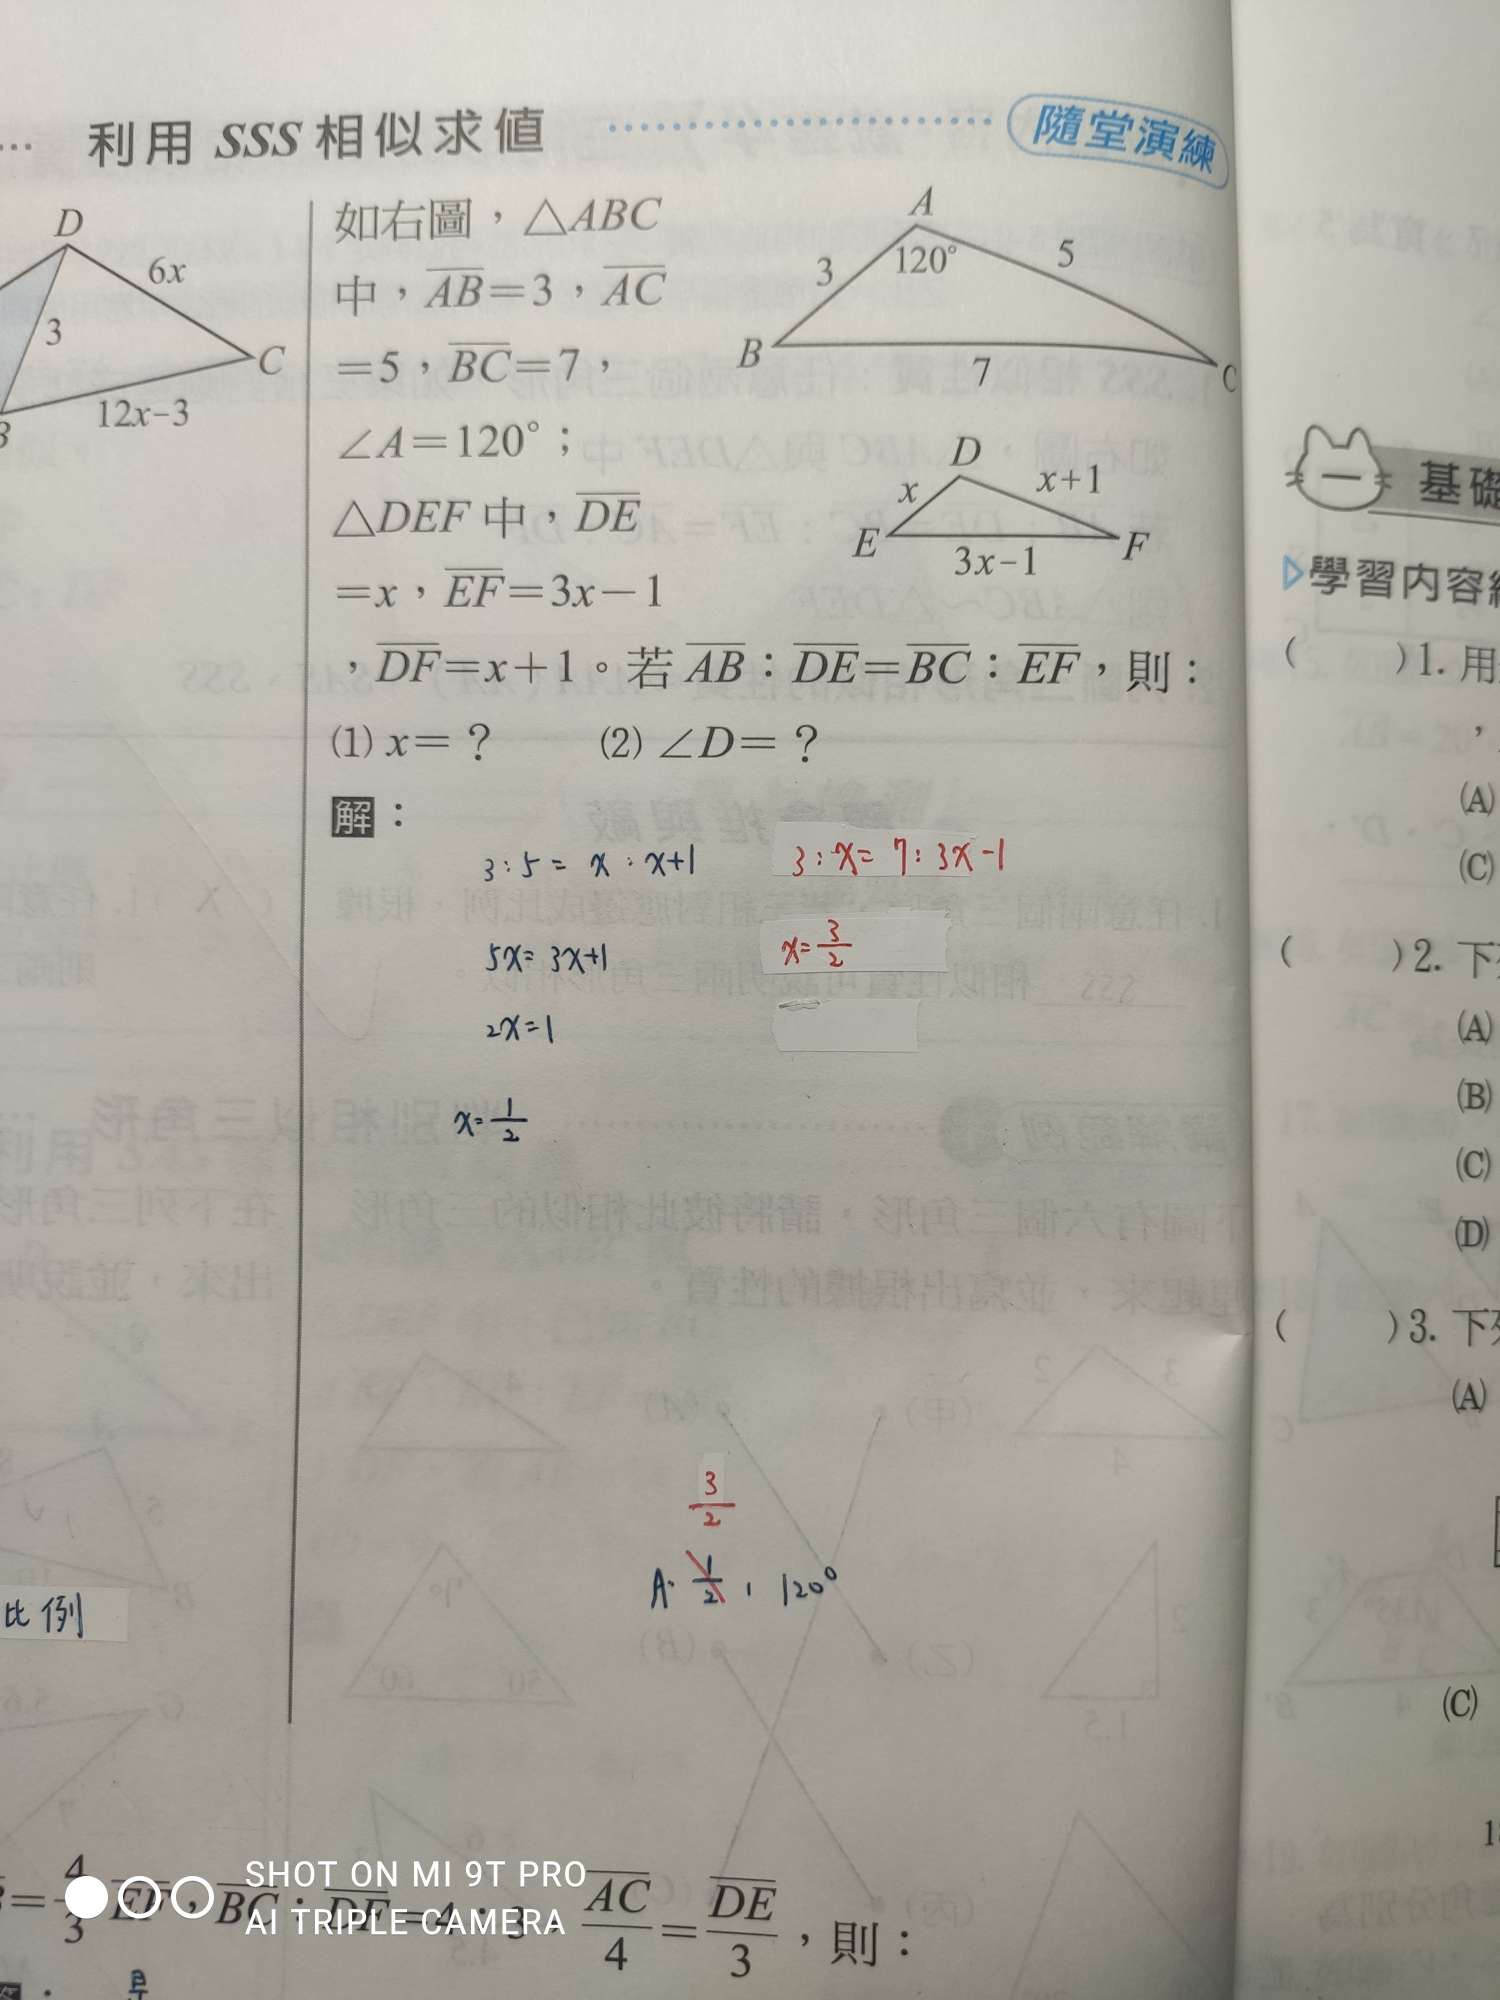 利用 SSS 相似求值
隨堂演練
D
6x
3
C
12x-3
B
如右圖，△ABC
中，AB=3，AC
=5，BC=7，
∠A=120°；
△DEF 中，DE
=x，EF=3x-1
，DF=x+1。若 AB：DE=BC：EF，則：
(1) x=？ (2) ∠D=？
A
3
120°
5
B
7
C
D
x
x+1
E
3x-1
F
解：
3:5= x:x+1
3:x= 7:3x-1
5x=3x+1
x=3/2
2x=1
x=1/2
3/2
A. 1/2, 120°
比例
=4/3 EF，BC：DF=4：3，AC/4=DE/3，則：
SHOT ON MI 9T PRO
AI TRIPLE CAMERA
一
基礎
學習內容
( )1. 用
(A)
(C)
( )2. 下列
(A)
(B)
(C)
(D)
( )3. 下列
(A)
(C)